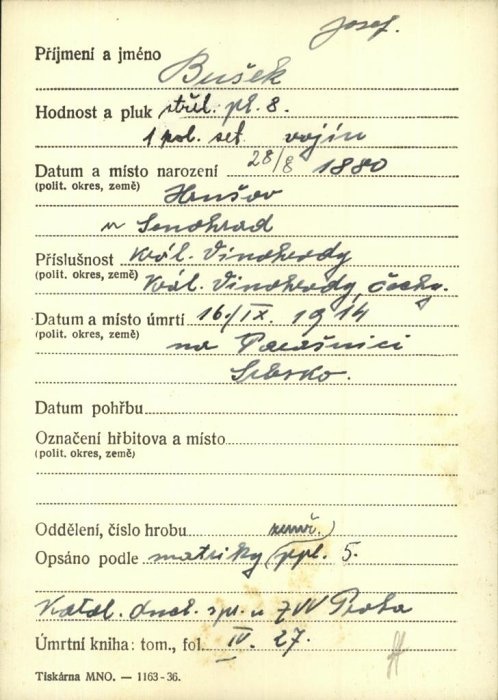 Josef.
Příjmení a jméno Bušek
Hodnost a pluk střel. pl. 8.
1 pol. set vojín
Datum a místo narození 28/8 1880
(polit. okres, země) Hrušov
u Senohrad
Příslušnost Král. Vinohrady
(polit. okres, země) Král. Vinohrady, Čechy.
Datum a místo úmrtí 16./IX. 1914
(polit. okres, země)
na Parašnici
Srbsko.
Datum pohřbu
Označení hřbitova a místo
(polit. okres, země)
Oddělení, číslo hrobu
Opsáno podle matriky ppl. 5.
Katol. duch. spr. u ZVV Praha
Úmrtní kniha: tom., fol. IV. 27.
Tiskárna MNO. — 1163-36.